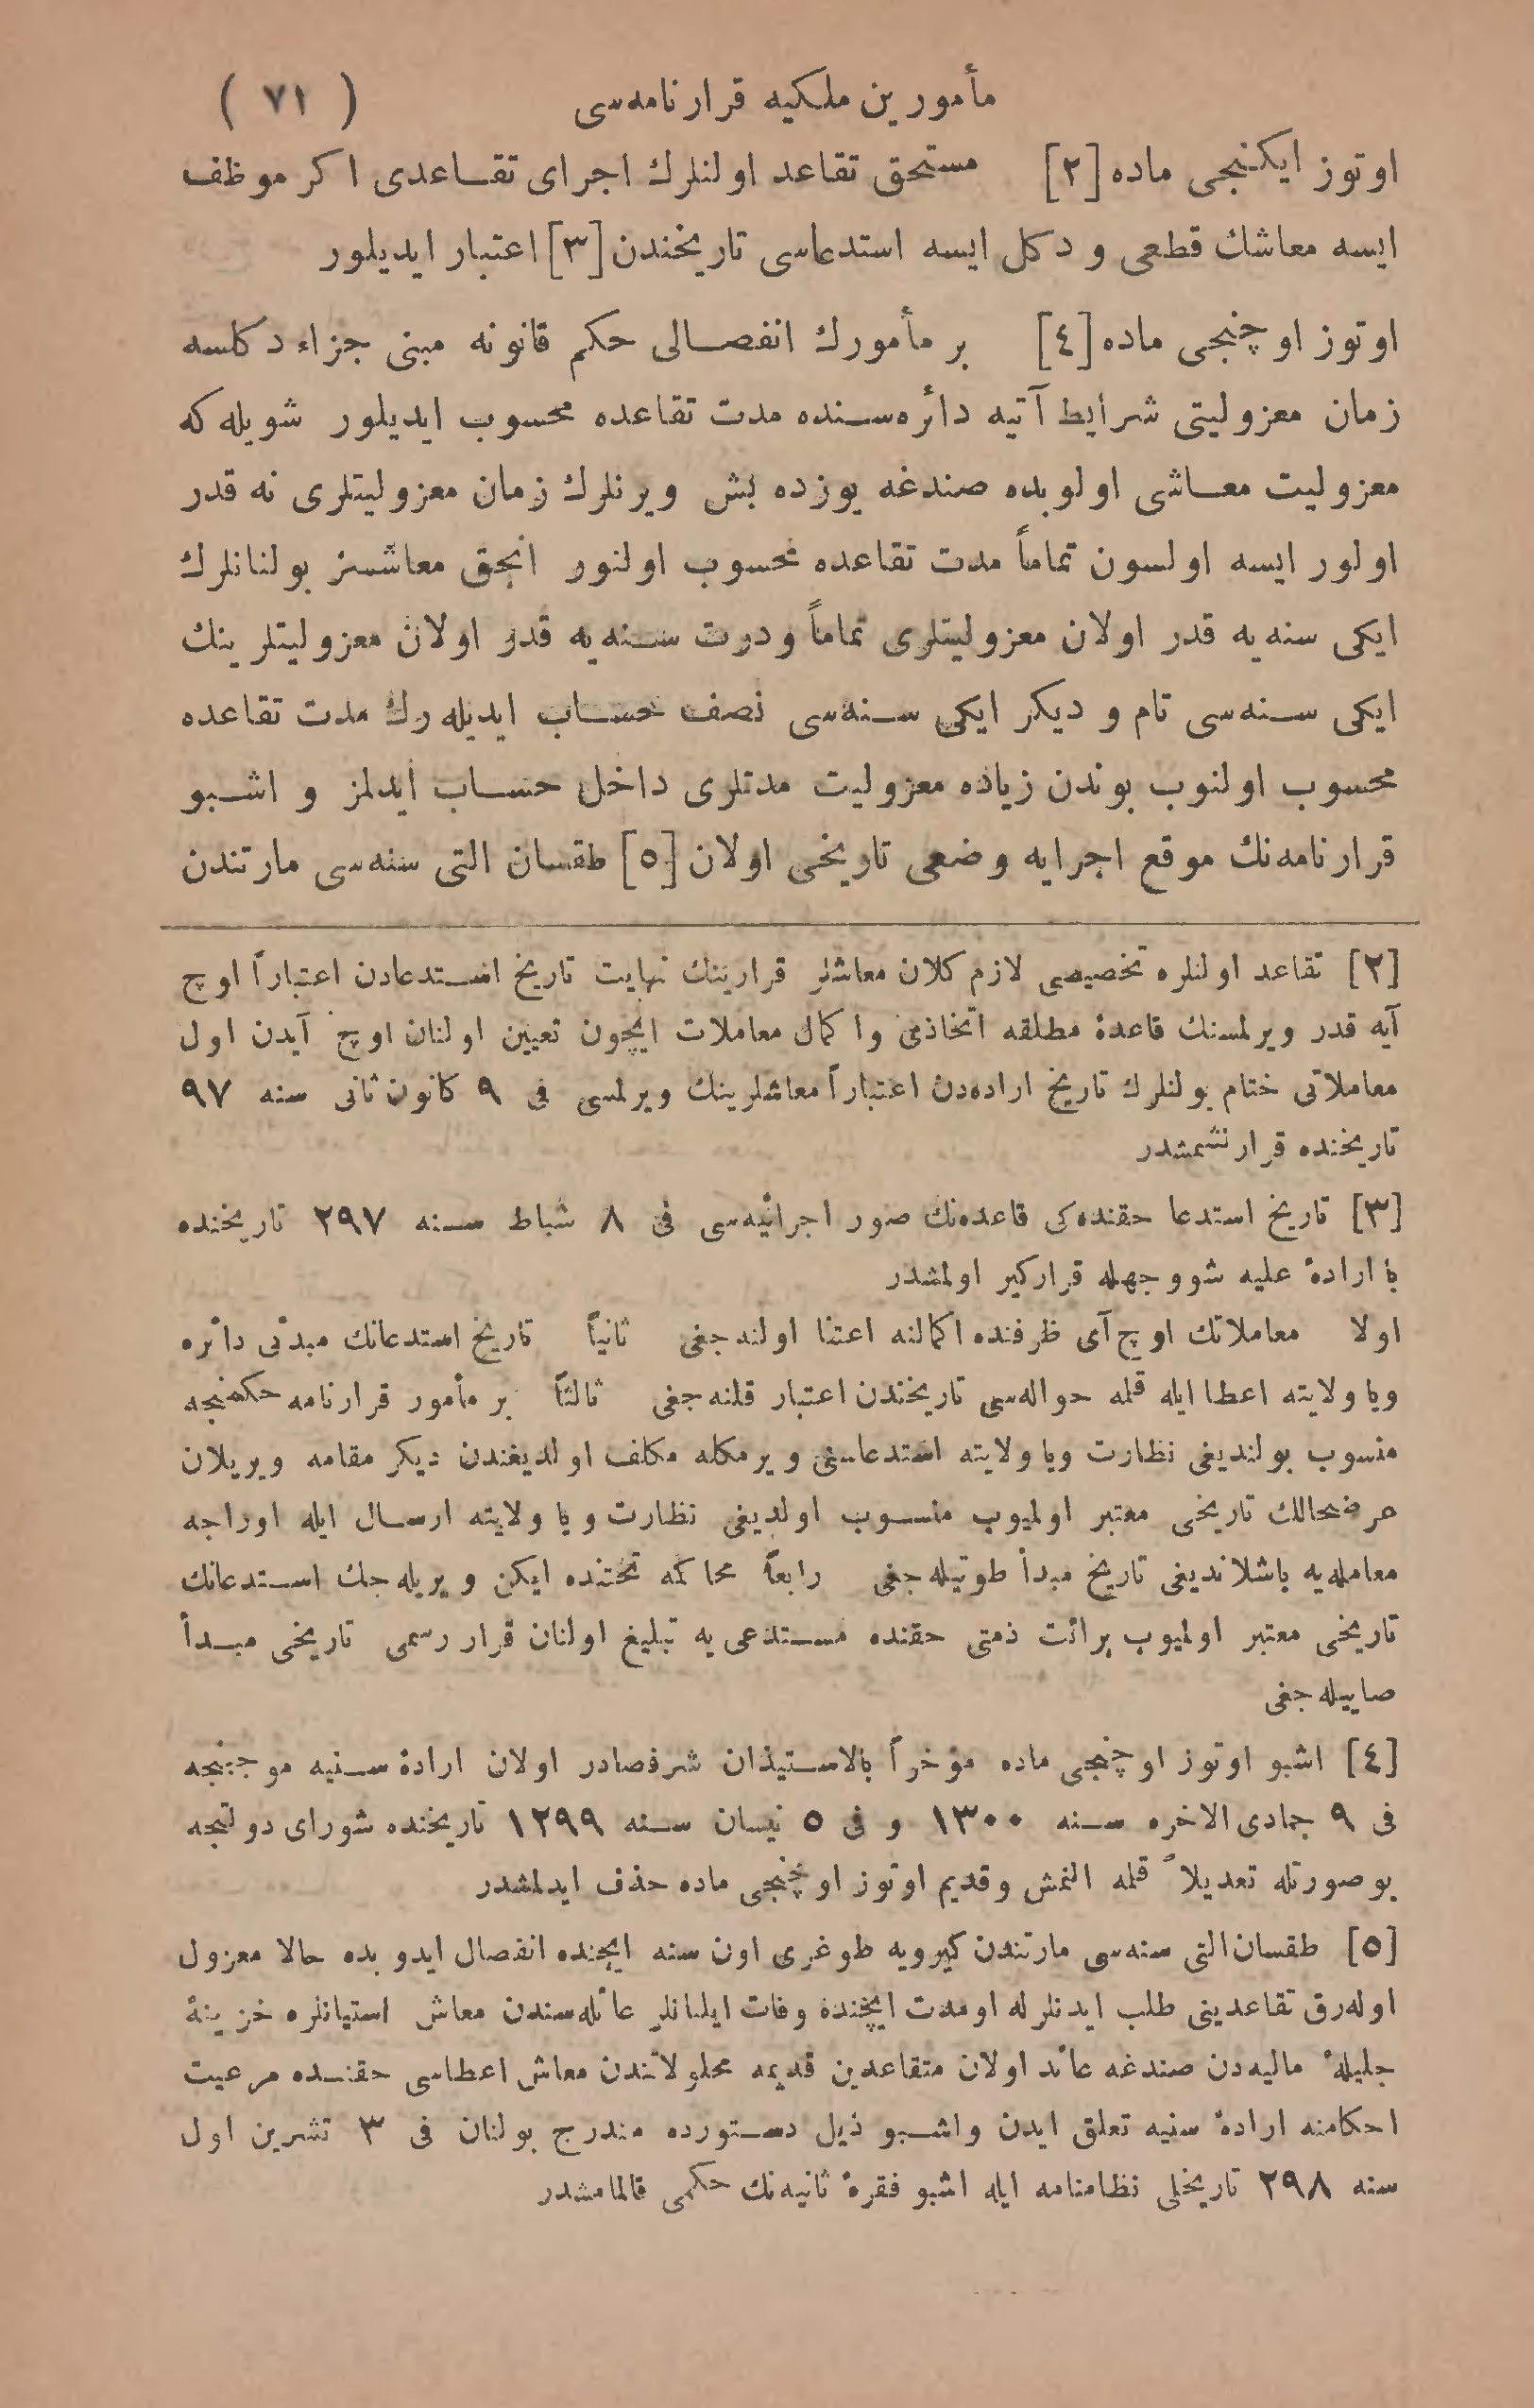 مأمورین ملکیه قرارنامه‌سی ( ٧١ )
اوتوز ایکنجی ماده [٢] مستحق تقاعد اولنلرك اجرای تقاعدی اکر موظف
ایسه معاشك قطعی و دکل ایسه استدعاسی تاریخندن [٣] اعتبار ایدیلور
اوتوز اوچنجی ماده [٤] بر مأمورك انفصالی حکم قانونه مبنی جزاء دکلسه
زمان معزولیتی شرایط آتیه دائره‌سنده مدت تقاعده محسوب ایدیلور شویله که
معزولیت معاشی اولوبده صندغه یوزده بش ویرنلرك زمان معزولیتلری نه قدر
اولور ایسه اولسون تماماً مدت تقاعده محسوب اولنور انجق معاشسز بولنانلرك
ایکی سنه‌یه قدر اولان معزولیتلری تماماً ودرت سنه‌یه قدر اولان معزولیتلرینك
ایکی سنه‌سی تام و دیکر ایکی سنه‌سی نصف حساب ایدیله‌رك مدت تقاعده
محسوب اولنوب بوندن زیاده معزولیت مدتلری داخل حساب ایدلمز و اشبو
قرارنامه‌نك موقع اجرایه وضعی تاریخی اولان [٥] طقسان التی سنه‌سی مارتندن
[٢] تقاعد اولنلره تخصیصی لازم کلان معاشلر قرارینك نهایت تاریخ استدعادن اعتباراً اوچ
آیه قدر ویرلمسنك قاعدۀ مطلقه اتخاذی واکمال معاملات ایچون تعیین اولنان اوچ آیدن اول
معاملاتی ختام بولنلرك تاریخ اراده‌دن اعتباراً معاشلرینك ویرلمسی فی ٩ کانون ثانی سنه ٩٧
تاریخنده قرارنشمشدر
[٣] تاریخ استدعا حقنده‌کی قاعده‌نك صور اجرائیه‌سی فی ٨ شباط سنه ٢٩٧ تاریخنده
با ارادۀ علیه شو وجهله قرارکیر اولمشدر
اولا معاملاتك اوچ آی ظرفنده اکمالنه اعتنا اولنه‌جغی ثانیاً تاریخ استدعانك مبدئی دائره
ویا ولایته اعطا ایله قلمه حواله‌سی تاریخندن اعتبار قلنه‌جغی ثالثاً بر مأمور قرارنامه حکمنجه
منسوب بولندیغی نظارت ویا ولایته استدعاسنی ویرمکله مکلف اولدیغندن دیکر مقامه ویریلان
عرضحالك تاریخی معتبر اولمیوب منسوب اولدیغی نظارت و یا ولایته ارسال ایله اوراجه
معامله‌یه باشلاندیغی تاریخ مبدأ طوتیله‌جغی رابعاً محاکمه تحتنده ایکن ویریله‌جك استدعانك
تاریخی معتبر اولمیوب برائت ذمتی حقنده مستدعی‌یه تبلیغ اولنان قرار رسمی تاریخی مبدأ
صاییله‌جغی
[٤] اشبو اوتوز اوچنجی ماده مؤخراً بالاستیذان شرفصادر اولان ارادۀ سنیه موجبنجه
فی ٩ جمادی الاخره سنه ١٣٠٠ و فی ٥ نیسان سنه ١٢٩٩ تاریخنده شورای دولتجه
بوصورتله تعدیلاً قلمه النمش وقدیم اوتوز اوچنجی ماده حذف ایدلمشدر
[٥] طقسان التی سنه‌سی مارتندن کیرویه طوغری اون سنه ایچنده انفصال ایدوبده حالا معزول
اوله‌رق تقاعدینی طلب ایدنلرله اومدت ایچنده وفات ایلیانلر عائله‌سندن معاش استیانلره خزینۀ
جلیلۀ مالیه‌دن صندغه عائد اولان متقاعدین قدیمه محلولاتندن معاش اعطاسی حقنده مرعیت
احکامنه ارادۀ سنیه تعلق ایدن واشبو ذیل دستورده مندرج بولنان فی ٣ تشرین اول
سنه ٢٩٨ تاریخلی نظامنامه ایله اشبو فقرۀ ثانیه‌نك حکمی قالمامشدر